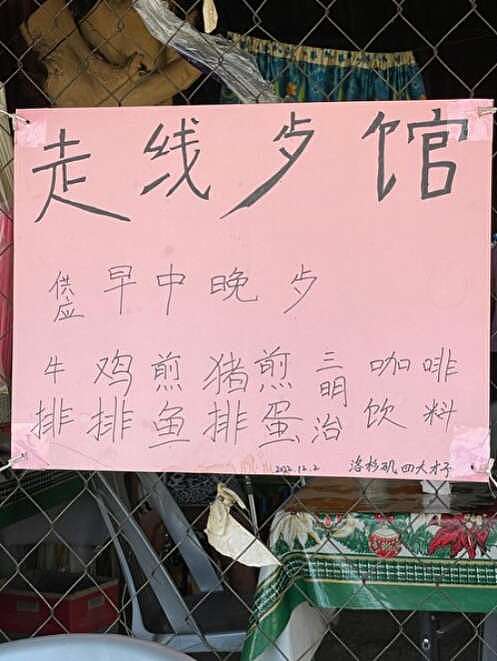 走线歺馆
供应 早中晚歺
牛排
鸡排
煎鱼
猪排
煎蛋
三明治
咖啡
饮料
2022.12.2 洛杉矶四大才子